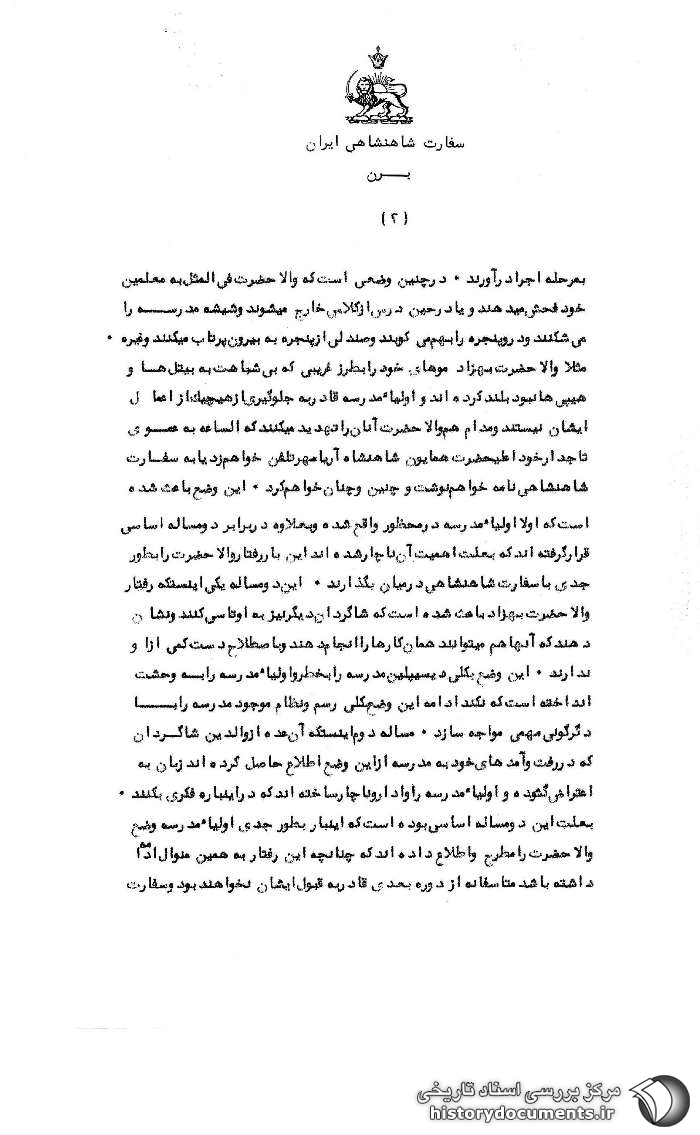 سفارت شاهنشاهی ایران
برن
(۲)
بمرحله اجرا درآورند ۰ درچنین وضعی است که والاحضرت فی المثل به معلمین
خود فحش میدهند و یا درحین درس ازکلاس خارج میشوند وشیشه مدرسه را
می شکنند ودروپنجره را بهم می کوبند وصندلی ازپنجره به بیرون پرتاب میکنند وغیره ۰
مثلا والاحضرت بهزاد موهای خود رابطرز غریبی که بی شباهت به بیتل ها و
هیپی ها نبود بلند کرده اند و اولیاء مدرسه قادر به جلوگیری ازهیچیک از اعمال
ایشان نیستند ومدام هم والاحضرت آنان را تهدید میکنند که الساعه به عموی
تاجدارخود اعلیحضرت همایون شاهنشاه آریامهرتلفن خواهم زد یا به سفارت
شاهنشاهی نامه خواهم نوشت و چنین وچنان خواهم کرد ۰ این وضع باعث شده
است که اولا اولیاء مدرسه درمحظور واقع شده وبعلاوه دربرابر دومساله اساسی
قرارگرفته اند که بعلت اهمیت آن ناچارشده اند این باررفتاروالاحضرت رابطور
جدی با سفارت شاهنشاهی درمیان بگذارند ۰ این دومساله یکی اینستکه رفتار
والاحضرت بهزاد باعث شده است که شاگردان دیگرنیز به اوتاسی کنند ونشان
دهند که آنها هم میتوانند همان کارها را انجام دهند وباصطلاح دست کمی ازا و
ندارند ۰ این وضع بکلی دیسیپلین مدرسه را بخطرواولیاء مدرسه رابه وحشت
انداخته است که نکند ادامه این وضع کلی رسم ونظام موجود مدرسه رابا
دگرگونی مهمی مواجه سازد ۰ مساله دوم اینستکه آن عده ازوالدین شاگردان
که دررفت وآمدهای خود به مدرسه ازاین وضع اطلاع حاصل کرده اند زبان به
اعتراض گشوده و اولیاء مدرسه را وادار وناچارساخته اند که دراینباره فکری بکنند ۰
بعلت این دومساله اساسی بوده است که اینبار بطور جدی اولیاء مدرسه وضع
والاحضرت رامطرح واطلاع داده اند که چنانچه این رفتار به همین منوال ادامه
داشته باشد متاسفانه از دوره بعدی قادربه قبول ایشان نخواهند بود وسفارت
مرکز بررسی اسناد تاریخی
historydocuments.ir